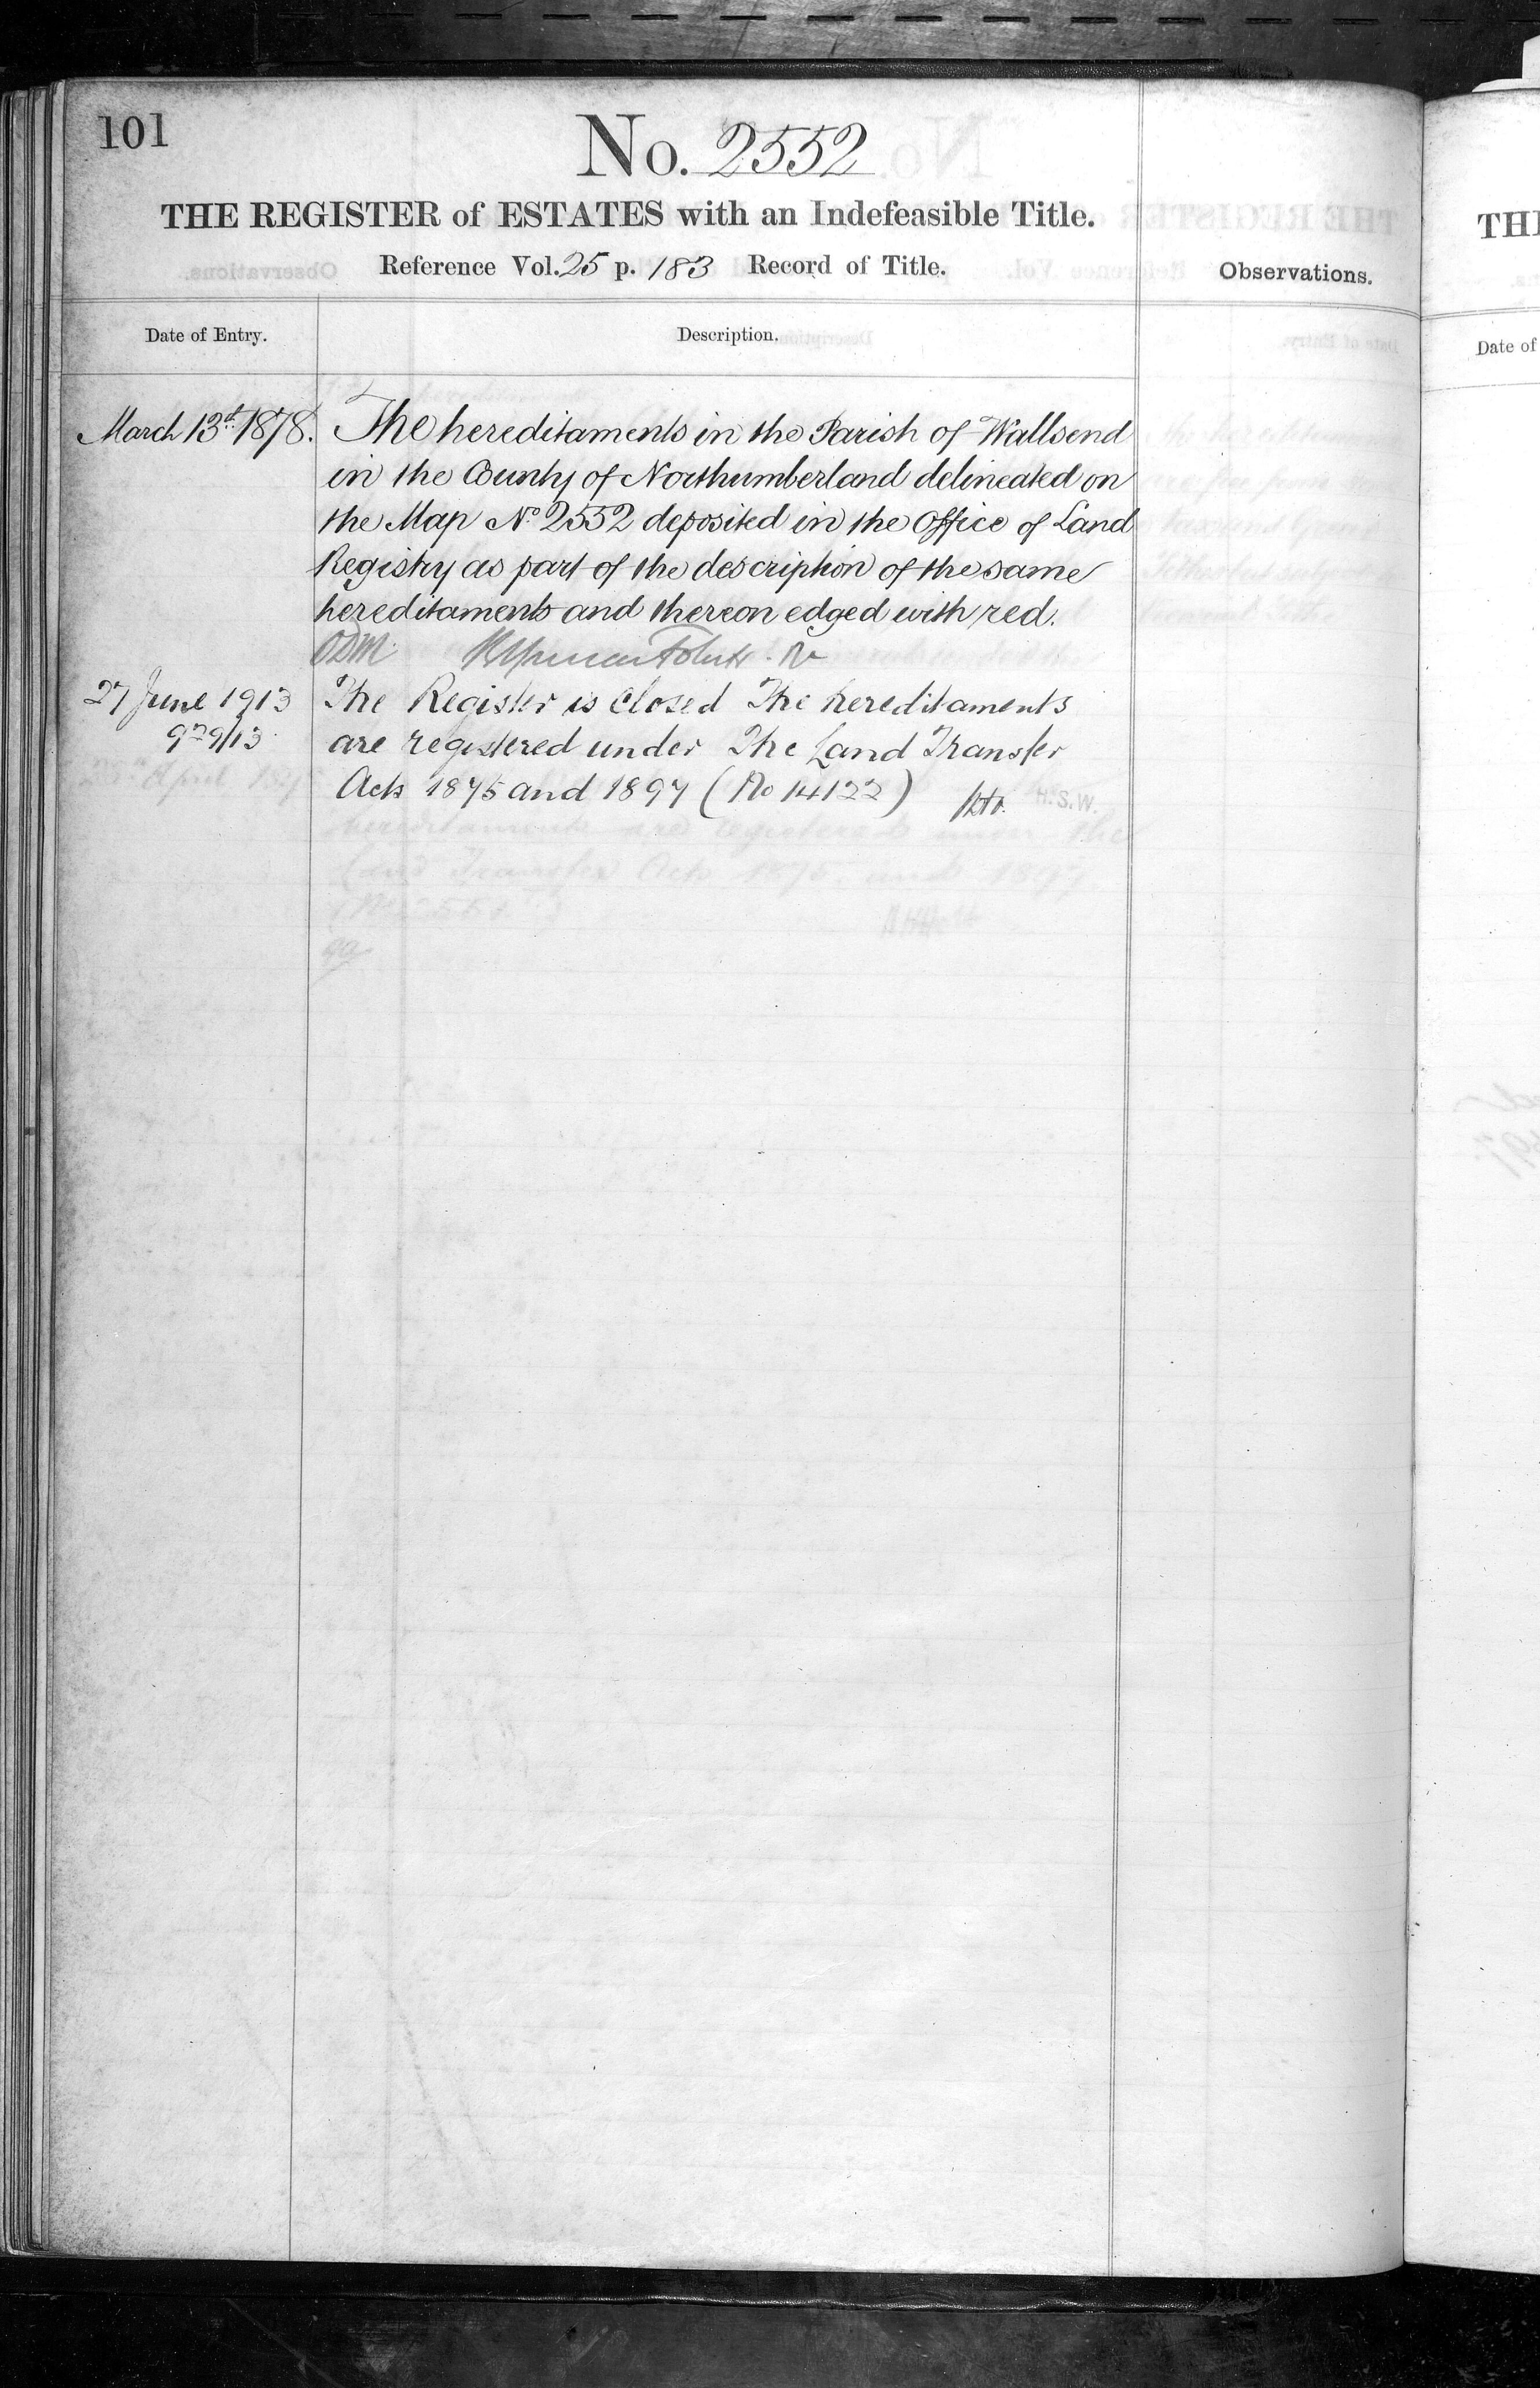 101
No. 2552
THE REGISTER of ESTATES with an Indefeasible Title.
Reference Vol. 25 p. 183 Record of Title.
Observations.
Date of Entry.
Description.
March 13th 1878.
The hereditaments in the Parish of Wallsend
in the County of Northumberland delineated on
the Map No 2552 deposited in the Office of Land
Registry as part of the description of the same
hereditaments and thereon edged with red.
27 June 1913
The Register is closed The hereditaments
are registered under The Land Transfer
Acts 1875 and 1897 (No 14122)
H.S.W.
Date of